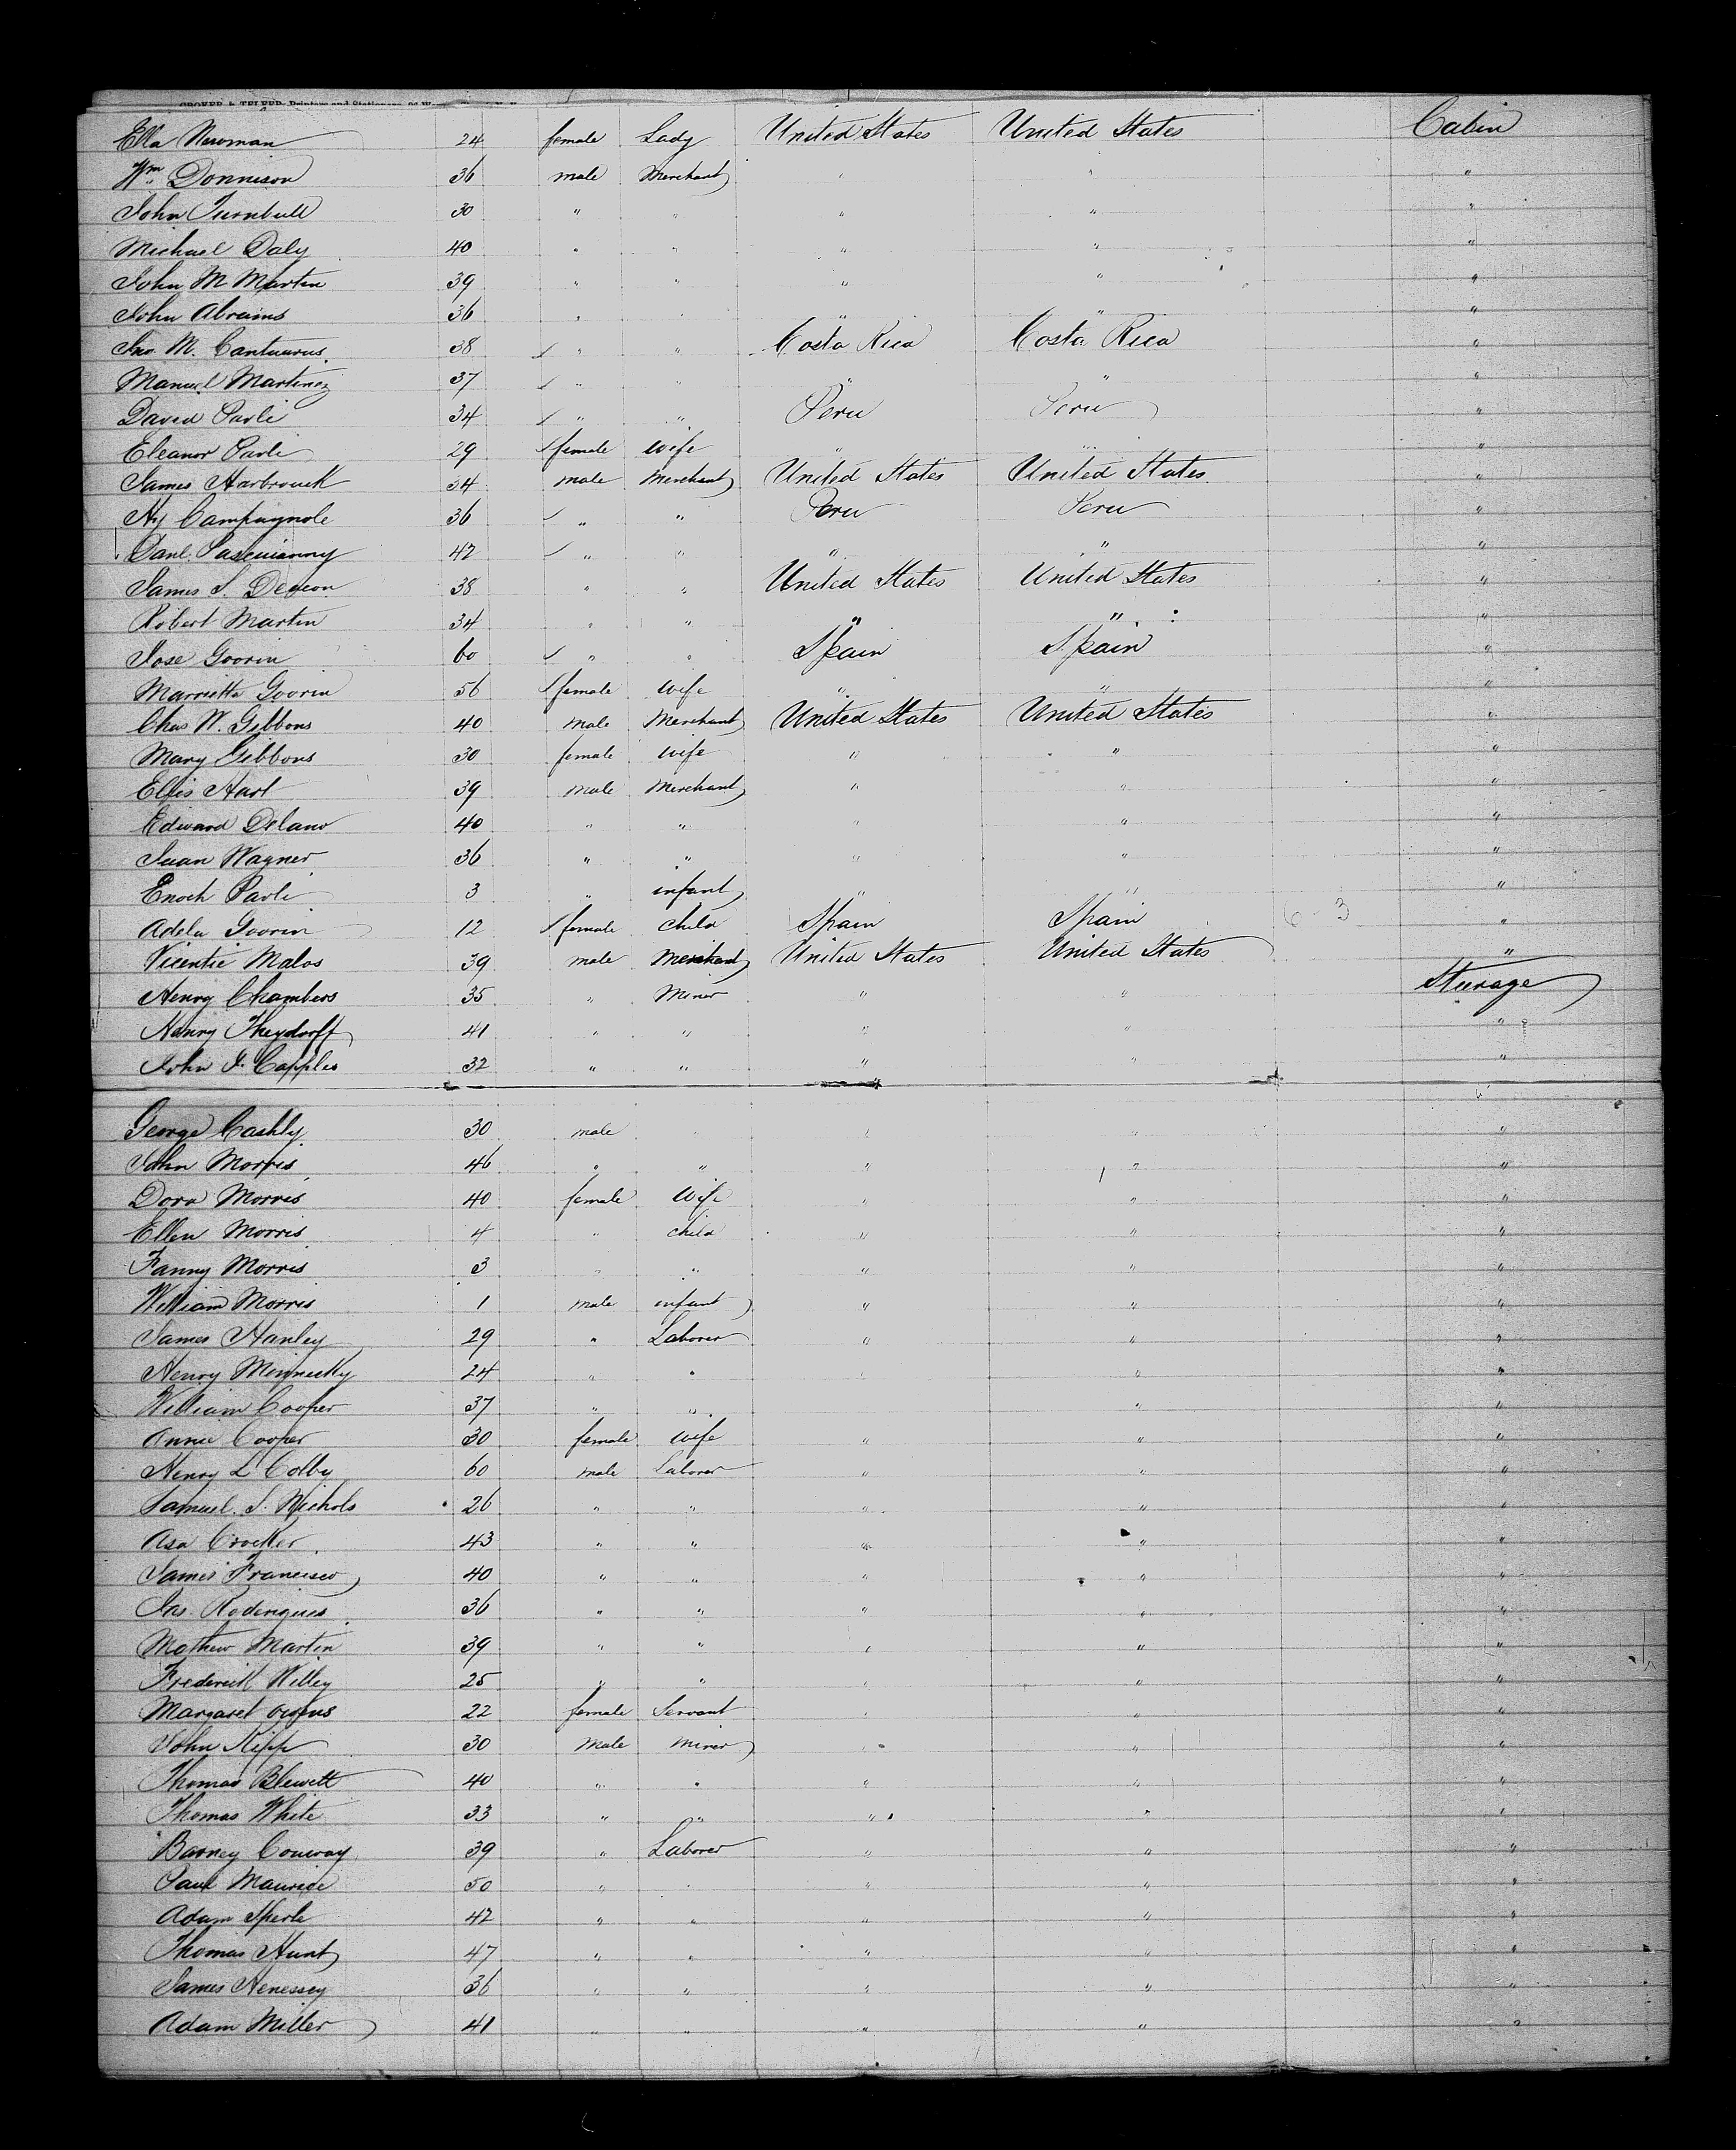 CROKER & TELFER, Printers and Stationers,
Ella Newman 24 female Lady United States United States Cabin
Wm Donnison 36 male Merchant " " "
John Turnbull 30 " " " " "
Michael Daly 40 " " " " "
John M Martin 39 " " " " "
John Abrams 36 " " " " "
Jno. M. Cantuarus 38 " " Costa Rica Costa Rica "
Manuel Martinez 37 " " " " "
David Pavli 34 " " Peru Peru "
Eleanor Pavli 29 female wife " " "
James Harbrouck 34 male Merchant United States United States "
Hy Campagnole 36 " " Peru Peru "
Danl. 42 " " " " "
James S. Deacon 38 " " United States United States "
Robert Martin 34 " " " " "
Jose Govrin 60 " " Spain Spain "
Marrietta Govrin 56 female wife " " "
Chas W. Gibbons 40 male Merchant United States United States "
Mary Gibbons 30 female wife " " "
Ellis Hart 39 male Merchant " " "
Edward Delano 40 " " " " "
Juan Wagner 36 " " " " "
Enoch Pavli 3 " infant " " "
Adela Govrin 12 female child Spain Spain 6-3 "
Vicentie Malos 39 male Merchant United States United States "
Henry Chambers 35 " Miner " " Steerage
Henry Theydorff 41 " " " " "
John J. Capples 32 " " " " "
George Cashly 30 male " " " "
John Morris 46 " " " " "
Dora Morris 40 female Wife " " "
Ellen Morris 4 " child " " "
Fanny Morris 3 " " " " "
William Morris 1 male infant " " "
James Hanley 29 " Laborer " " "
Henry 24 " " " " "
William Cooper 37 " " " "
Annie Cooper 30 female wife " " "
Henry L Colby 60 male Laborer " " "
Samuel. S. Nichols 26 " " " " "
Asa Crocker 43 " " " " "
James Francisco 40 " " " " "
Jas. Roderigues 36 " " " " "
Mathew Martin 39 " " " " "
Frederick Willey 25 " " " " "
Margaret Owens 22 female Servant " " "
John Kipp 30 Male Miner " " "
Thomas Blewett 40 " " " " "
Thomas White 33 " " " " "
Barney Conway 39 " Laborer " " "
Paul Maurice 50 " " " " "
Adam Sperle 42 " " " " "
Thomas Hunt 47 " " " " "
James Henessey 36 " " " " "
Adam Miller 41 " " " " "